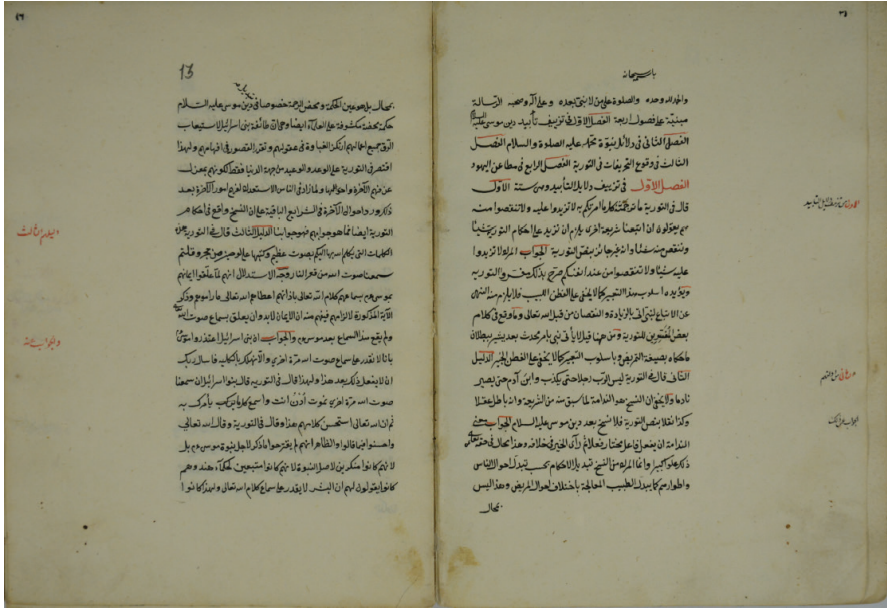 باسم سبحانه
والحمد لله وحده والصلوة على من لا نبي بعده وعلى آله وصحبه الرسالة
مبنية على فصول اربعة الفصل الاول في تزييف تأبيد دين موسى عليه السلام
الفصل الثاني في دلائل نبوة محمد عليه الصلوة والسلام الفصل
الثالث في وقوع التحريفات في التورية الفصل الرابع في مطاعن اليهود
الفصل الاول في تزييف دلايل التأبيد وهي ستة الاول
قال في التورية ما كلما امركم به لا تزيدوا عليه ولا تنقصوا منه
هم يقولون ان اتبعنا شريعة اخرى يلزم ان نزيد على احكام التورية شيئا
وننقص منه شيئا وانه غير جائز بنص التورية الجواب المراد لا تزيدوا
عليه شيئا ولا تنقصوا من عند انفسكم صرح بذلك مفسروا التورية
ويؤيده اسلوب هذا التعبير كما لا يخفى على الفطن اللبيب فلا يلزم منه النهي
عن الاتباع لنبي اتى بالزيادة والنقصان من قبل الله تعالى وما وقع في كلام
بعض المفسرين للتورية ومن ههنا قيل لا يأتي نبي بامر محدث بعد يشير ببطلان
ما حكاه بصيغة التمريض وباسلوب التعبير كما لا يخفى على الفطن الخبير الدليل
الثاني قال في التورية ليس الرب رجلا حتى يكذب وابن آدم حتى يصير
نادما ولا يخفى ان النسخ هو الندامة لما سبق منه من الشريعة وانه باطل عقلا
وكذا نقلا بنص التورية فلا نسخ بعد دين موسى عليه السلام الجواب معنى
الندامة ان يفعل فاعل مختار فعلا ثم رأى الخير في خلافه وهذا محال في حقه تعالى
ذلك علوا كبيرا وانما المراد من النسخ تبديل الاحكام بحسب تبدل احوال الناس
واطوارهم كما يبدل الطبيب المعالجة باختلاف احوال المريض وهذا ليس
بمحال
٤٦
13
بمحال بل هو عين الحكمة ومحض الرحمة خصوصا في دين موسى عليه السلام
حكمة محضة مكشوفة على العلماء ايضا وهي ان طائفة بني اسرائيل لاستيعاب
الرق جميع اعمالهم ارتكز الغباوة في عقولهم وتقرر القصور في افهامهم ولهذا
اقتصر في التورية على الوعد والوعيد من جهة الدنيا فقط لكونهم بمعزل
عن فهم الآخرة واحوالها ولما زاد في الناس الاستعداد لفهم امور الآخرة بعد
ذكر ورود احوال الآخرة في الشرايع الباقية على ان النسخ واقع في احكام
التورية ايضا فما هو جوابهم فهو جوابنا الدليل الثالث قال في التورية هذه
الكلمات التي يكلم الله بها اليكم بصوت عظيم وكتبها على لوحين من حجر وقلتم
سمعنا صوت الله من قعر النار وجه الاستدلال انهم لما علقوا ايمانهم
بموسى ءم بسماعهم كلام الله تعالى باذانهم اعطاهم الله تعالى ما راموه وذكر
الآية المذكورة لالزامهم فيفهم منه ان الايمان لا بد وان يعلق بسماع صوت الله
ولم يقع هذا السماع بعد موسى ءم والجواب ان بني اسرائيل اعتذروا
بانا لا نقدر على سماع صوت الله مرة اخرى والا نهلك بالكلية فاسأل ربك
ان لا يفعل ذلك بعد هذا ولهذا قال في التورية قالوا بنو اسرائيل ان سمعنا
صوت الله مرة اخرى نموت أدن انت واسمع كلام ربك بامرك به
ثم ان الله تعالى استحسن كلامهم هذا وقال في التورية وقال الله تعالى
واحسنوا فيما قالوا والظاهر انهم لم يقترحوا ما ذكر لاجل نبوة موسى ءم بل
لانهم كانوا منكرين لاصل النبوة لانهم كانوا متبعين لحكماء هند وهم
كانوا يقولون لهم ان البشر لا يقدر على سماع كلام الله تعالى ولهذا كانوا